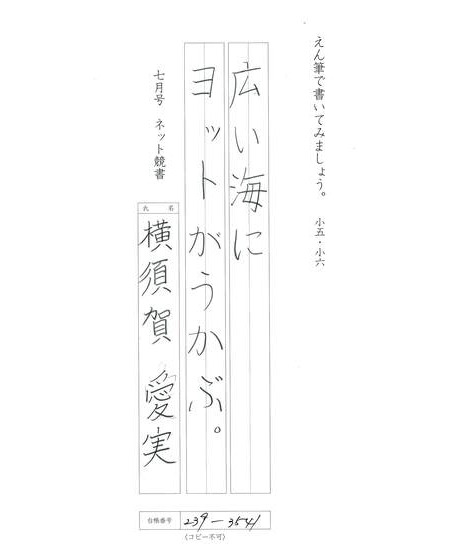 えん筆で書いてみましょう。 小五・小六
広い海に
ヨットがうかぶ。
七月号 ネット競書
氏名
横須賀 愛実
台帳番号 239-3541
(コピー不可)